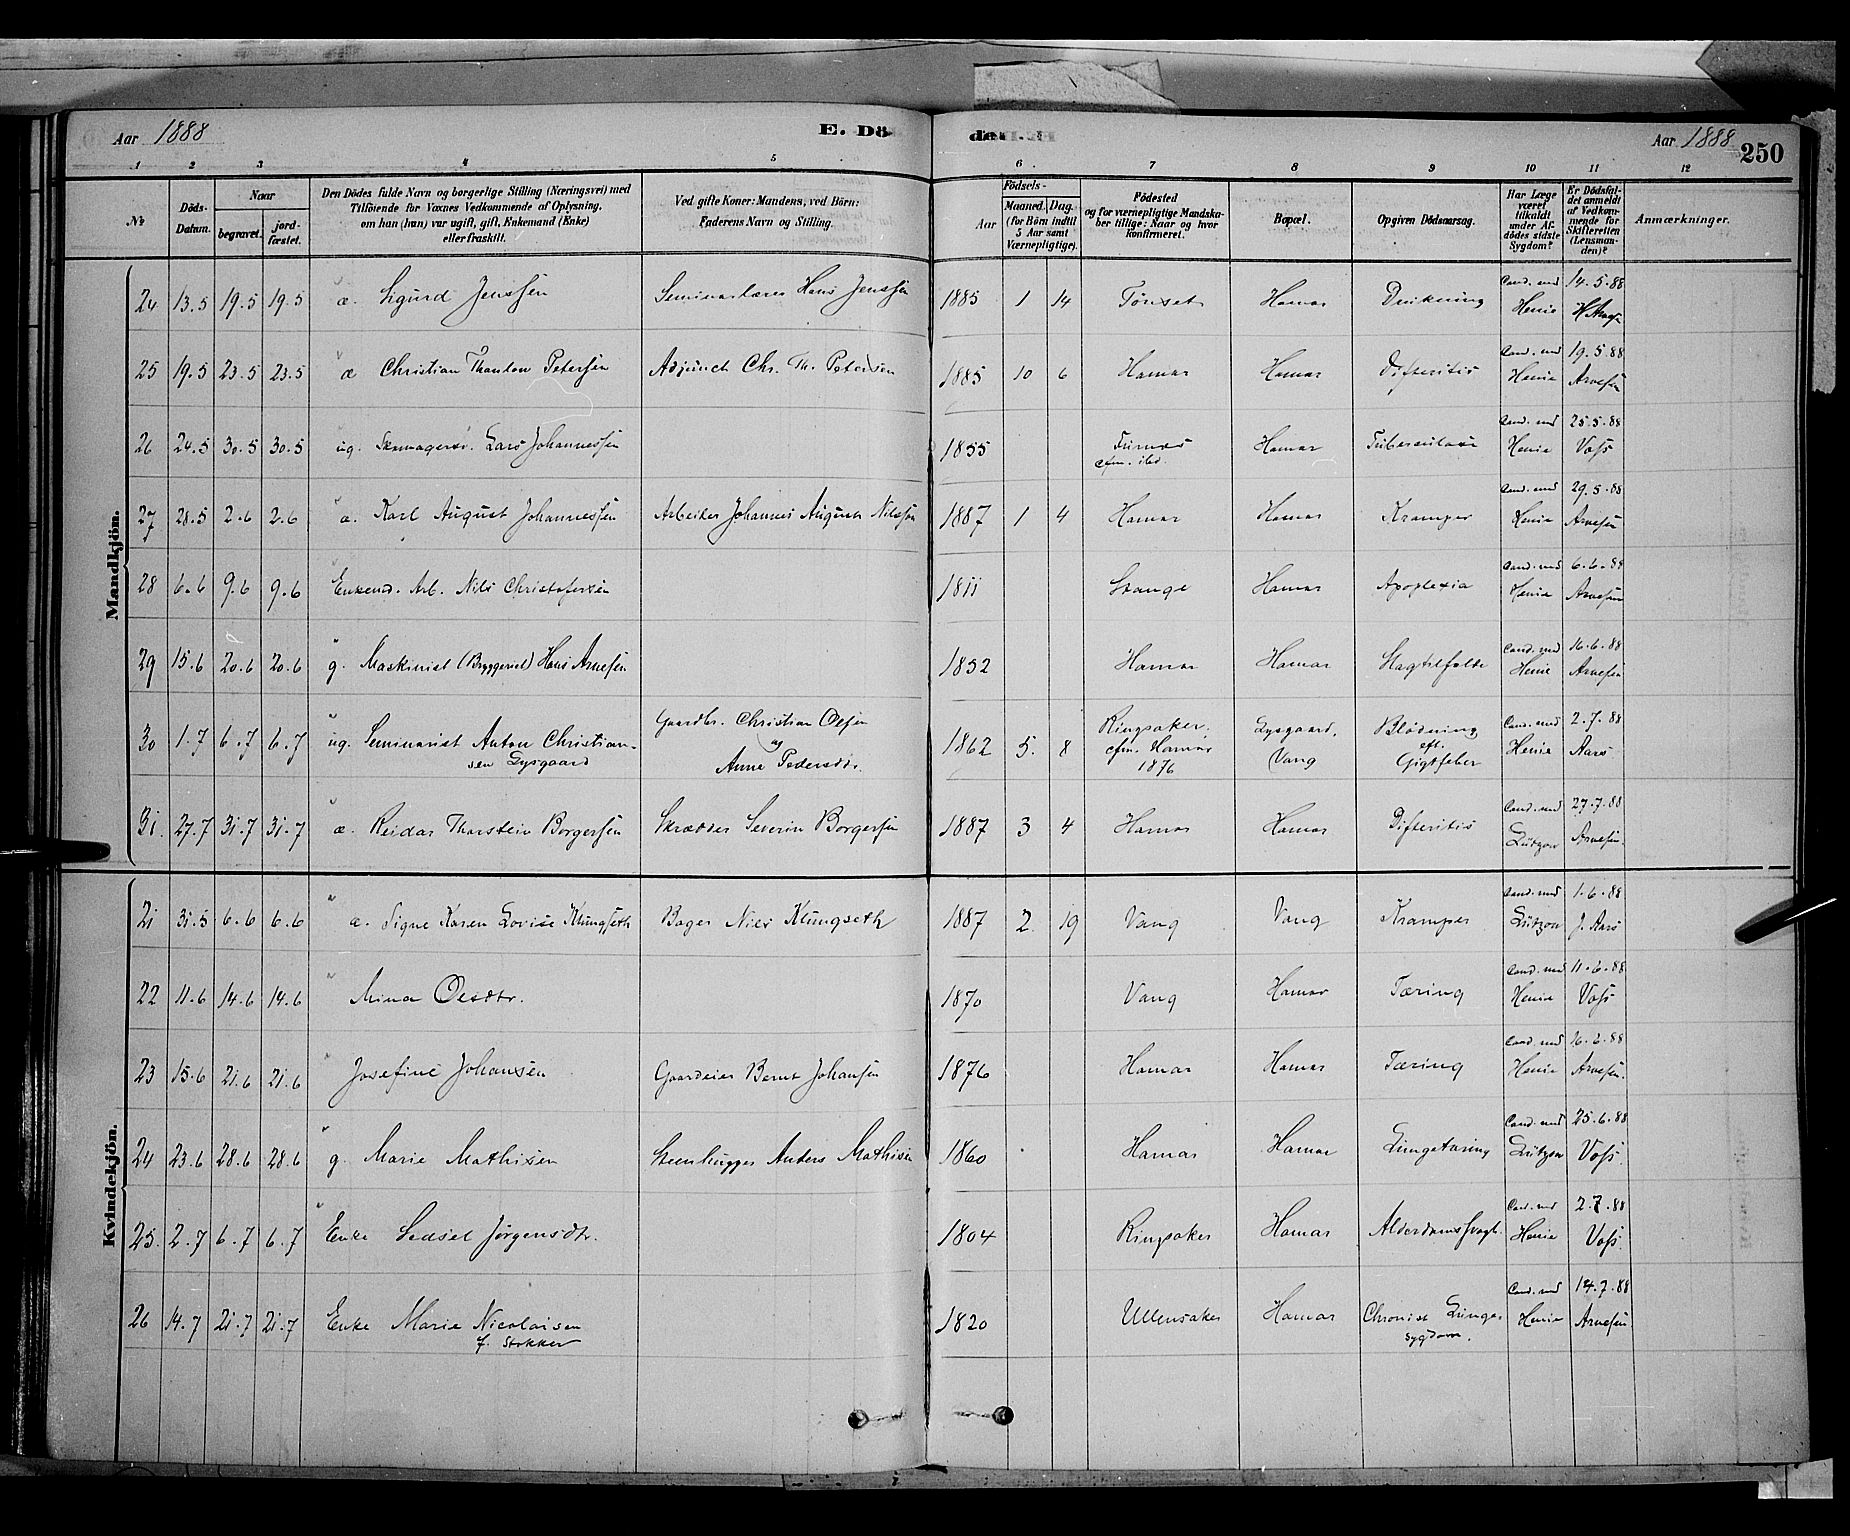 Aar 1888 E. Dö- de. Aar 1888 250
1 2 3 4 5 6 7 8 9 10 11 12
№ Döds-Datum. Naar begravet. jordfæstet. Den Dödes fulde Navn og borgerlige Stilling (Næringsvei) med Tilföiende for Voxnes Vedkommende af Oplysning, om han (hun) var ugift, gift, Enkemand (Enke) eller fraskilt. Ved gifte Koner: Mandens, ved Börn: Faderens Navn og Stilling. Födsels- Aar Maaned. Dag. (for Börn indtil 5 Aar samt Værnepligtige). Födested og for værnepligtige Mandskaber tillige: Naar og hvor konfirmeret. Bopæl. Opgiven Dödsaarsag. Har Læge været tilkaldt under Afdödes sidste Sygdom? Er Dödsfaldet anmeldt af Vedkommende for Skifteretten (Lensmanden)? Anmærkninger.
Mandkjön.
24 13.5 19.5 19.5 æ. Sigurd Jenssen Seminarlærer Hans Jenssen 1885 1 14 Tönset Hamar Drukning Cand. med Henie 14.5.88 H Arnesen
25 19.5 23.5 23.5 æ Christian Thanton Petersen Adjunct Chr. Th. Petersen 1885 10 6 Hamar Hamar Difteritis Cand. med Henie 19.5.88 Arnesen
26 24.5 30.5 30.5 ug. Skomagersv. Lars Johannessen 1855 Furnes cfm. ibd. Hamar Tuberculose Cand. med Henie 25.5.88 Voss
27 28.5 2.6 2.6 æ. Karl August Johannessen Arbeider Johannes August Nilssen 1887 1 4 Hamar Hamar Kramper Cand. med Henie 29.5.88 Arnesen
28 6.6 9.6 9.6 Enkemd. Arb. Nils Christofersen 1811 Stange Hamar Apoplexia Cand. med Henie 6.6.88 Arnesen
29 15.6 20.6 20.6 g. Maskinist (Bryggeriet) Hans Arnesen 1852 Hamar Hamar Slagtilfælde Cand. med Henie 16.6.88 Arnesen
30 1.7 6.7 6.7 ug. Seminarist Anton Christiansen Lysgaard Gaardbr. Christian Olsen og Anne Pedersdtr. 1862 5. 8 Ringsaker, cfm. Hamar 1876 Lysgaard, Vang Blödning eft. Gigtfeber Cand. med Henie 2.7.88 Aars
31. 27.7 31.7 31.7 æ. Reidar Thorstein Borgersen Skrædder Severin Borgersen 1887 3 4 Hamar Hamar Difteritis Cand. med Lützow 27.7.88 Arnesen.
Kvindekjön.
21 31.5 6.6 6.6 æ. Signe Karen Lovise Klungseth Bager Nils Klungseth 1887 2. 19 Vang Vang Kramper Cand. med Lützow 1.6.88 J. Aars
22 11.6 14.6 14.6 Mina Olsdtr. 1870 Vang Hamar Tæring Cand. med Henie 11.6.88 Voss
23 15.6 21.6 21.6 Josefine Johansen Gaardeier Bernt Johansen 1876 Hamar Hamar Tæring Cand. med Henie 16.6.88 Arnesen.
24 23.6 28.6 28.6 g. Marie Mathisen Steenhugger Anders Mathisen 1860 Hamar Hamar Lungetæring Cand. med Lützow 25.6.88 Voss.
25. 2.7 6.7 6.7 Enke Sedsel Jørgensdtr. 1804 Ringsaker Hamar Alderdomssvagh. Cand. med Henie 2.7.88 Voss.
26 14.7 21.7 21.7 Enke Marie Nicolaisen f. Stokker 1820 Ullensaker Hamar Chronisk Lungesygdom. Cand. med Henie 14.7.88 Arnesen